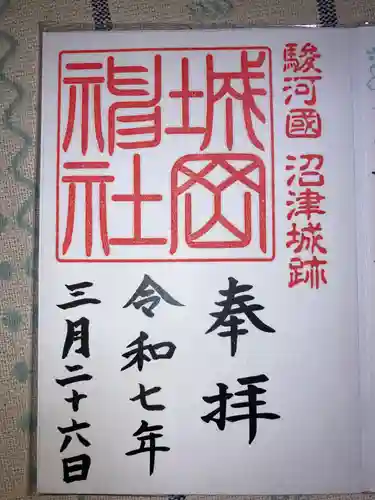 駿河國 沼津城跡
城岡神社
奉拝
令和七年
三月二十六日